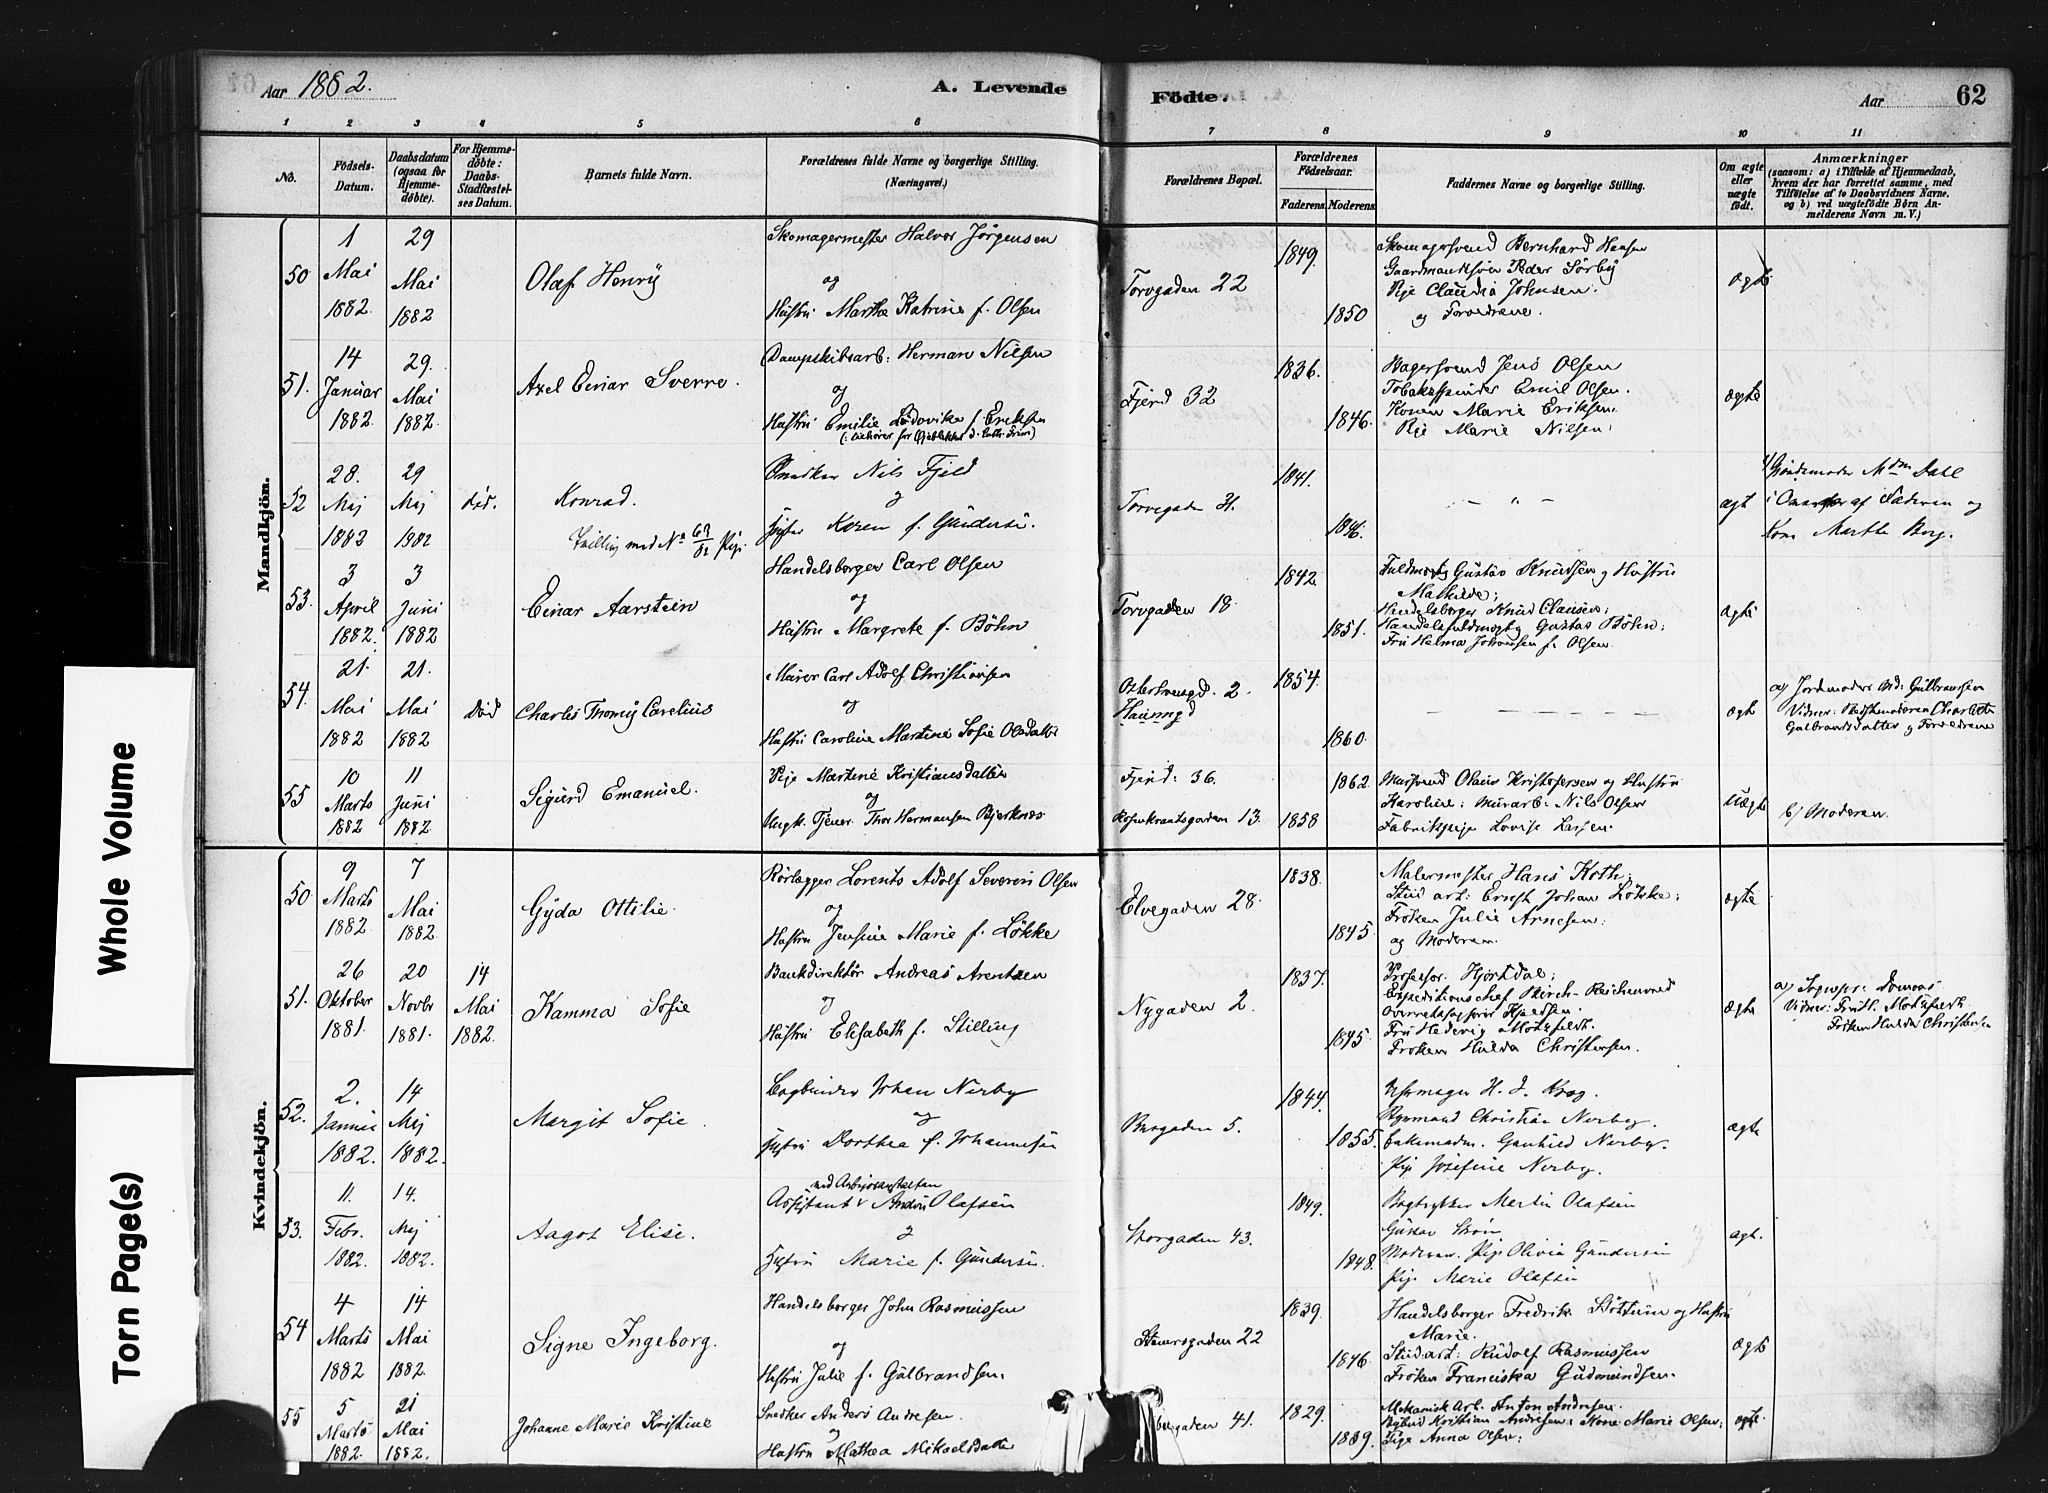 Aar 1882.
A. Levende
Födte.
Aar
62
1 2 3 4 5 6 7 8 9 10 11
No.
Födsels-Datum.
Daabsdatum (ogsaa for Hjemmedöbte).
For Hjemmedöbte: Daabs-Stadfæstelses Datum.
Barnets fulde Navn.
Forældrenes fulde Navne og borgerlige Stilling. (Næringsvei.)
Forældrenes Bopæl.
Forældrenes Födselsaar.
Faderens. Moderens.
Faddernes Navne og borgerlige Stilling.
Om ægte eller uægte födt.
Anmærkninger
(saasom: a) i Tilfælde af Hjemmedaab, hvem der har forrettet samme, med Tilföielse af to Daabsvidners Navne. og b) ved uægtefödte Börn Anmelderens Navn m. V.)
Mandkjön.
50
1 Mai 1882.
29 Mai 1882
Olaf Henry
Skomagermester Halvor Jörgensen
og
Hustru Marthe Katrine f. Olsen
Torvgaden 22
1849.
1850
Skomagersvend Bernhard Hansen
Peder Sörby
Pige Claudia Johnsen.
og Forældrene.
ægte
51.
14 Januar 1882
29. Mai 1882.
Axel Einar Sverre.
Dampskibsarb: Herman Nilsen
og
Hustru Emilie Lodovike f. Eriksen
Fjerd 32
1836.
1846.
Bagersvend Jens Olsen
Tobakspinder Emil Olsen.
Konen Marie Eriksen.
Pige Marie Nilsen.
ægte
52
28. Maj 1882
29 Maj 1882
död.
Konrad.
Tvilling med No 67/82 Pige
Snedker Nils Fjeld
og
Hustru Karen f. Gundersen.
Torvegaden 31.
1841.
1846.
- " -
ægt
Madm Dahl
af Faderen og
Kone Marthe Berg.
53.
3 April 1882.
3 Juni 1882
Einar Aarstein
Handelsborger Carl Olsen
og
Hustru Margrete f. Böhn
Torvgaden 18.
1842
1851.
Fuldmægtig Gustav Knudsen og Hustru
Mathilde;
Handelsborger Knud Clausen;
Handelsfuldmægtig Gustav Böhn;
Fru Helma Johansen f. Olsen.
ægte
54.
21. Mai 1882
21. Mai 1882
Död
Charles Thomy Carelius
Murer Carl Adolf Christiansen
og
Hustru Caroline Martine Sofie Olsdatter
2.
1854.
1860.
— — — — —
ægte
a) Jordmoder Gulbransen
Vidner: Charlotte
Gulbrandsdatter og Forældrene
55
10 Marts 1882
11 Juni 1882.
Sigurd Emanuel.
Pige Martine Kristiansdatter
og
Ungk. Tjener Thor Hermansen Bjerknæs
Fjerd: 36.
Rosenkrantsgaden 13.
1862
1858
Mursvend Olaus Kristofersen og Hustru
Karoline; Murarb: Nils Olsen
Fabrikpige Lovise Larsen.
Uægte
b) Moderen.
Kvindekjön.
50
9 Marts 1882.
7 Mai 1882.
Gyda Ottilie.
Rörlægger Lorents Adolf Severin Olsen
og
Hustru Jensine Marie f. Lökke
Elvegaden 28.
1838.
1845.
Malermester Hans Koth;
Stud art: Ernst Johan Lökke;
Fröken Julie Arnesen;
og Moderen.
ægte
51.
26 Oktober 1881.
20 Novbr 1881.
14 Mai 1882.
Kamma Sofie
Bankdirektör Andreas Arentzen
og
Hustru Elisabeth f. Stilling
Nygaden 2.
1837.
1845.
Professor Hjortdal;
Expeditionschef Birch-Reichenwald
Overretssagförer Hjeldsen.
Fru Hedevig Motzfeldt.
Fröken Hulda Christensen.
ægte
a) Sognepr:
Vidner: Motzfeldt
Fröken Hulda Christensen
52.
2. Januar 1882.
14 Maj 1882.
Margit Sofie.
Bogbinder Johan Nerby
og
Hustru Dorthea f. Johannesen
5.
1844.
1855.
Uhrmager H. J. Krog.
Christian Nerby.
Gunhild Nerby.
Pige Josefine Nerby.
ægte
53.
11. Febr. 1882.
14. Maj 1882.
Aagot Elise.
ved Arbejdsanstalten
Assistant Anders Olafsen
og
Hustru Marie f. Gundersen.
Storgaden 43.
1849.
1848.
Bogtrykker Martin Olafsen
Gustav Ström
Moderen. Pige Olivia Gundersen
Pige Marie Olafsen
ægt.
54
4 Marts 1882
14 Mai 1882.
Signe Ingeborg.
Handelsborger John Rasmussen
og
Hustru Julie f. Gulbrandsen.
Stenersgaden 22
1839
1846.
Handelsborger Fredrik og Hustru
Marie.
Stud art: Rudolf Rasmussen
Fröken Franciska Gudmundsen.
ægte
55
5 Marts 1882.
21 Mai 1882.
Johanne Marie Kristine
Snedker Anders Andresen.
og
Hustru Mathea Mikaelsdatter
41.
1829.
1839.
Mekanisk Arb. Anton Andresen.
Kristian Andresen; Kone Marie Olsen;
Pige Anna Olsen;
ægte.
Whole Volume
Torn Page(s)